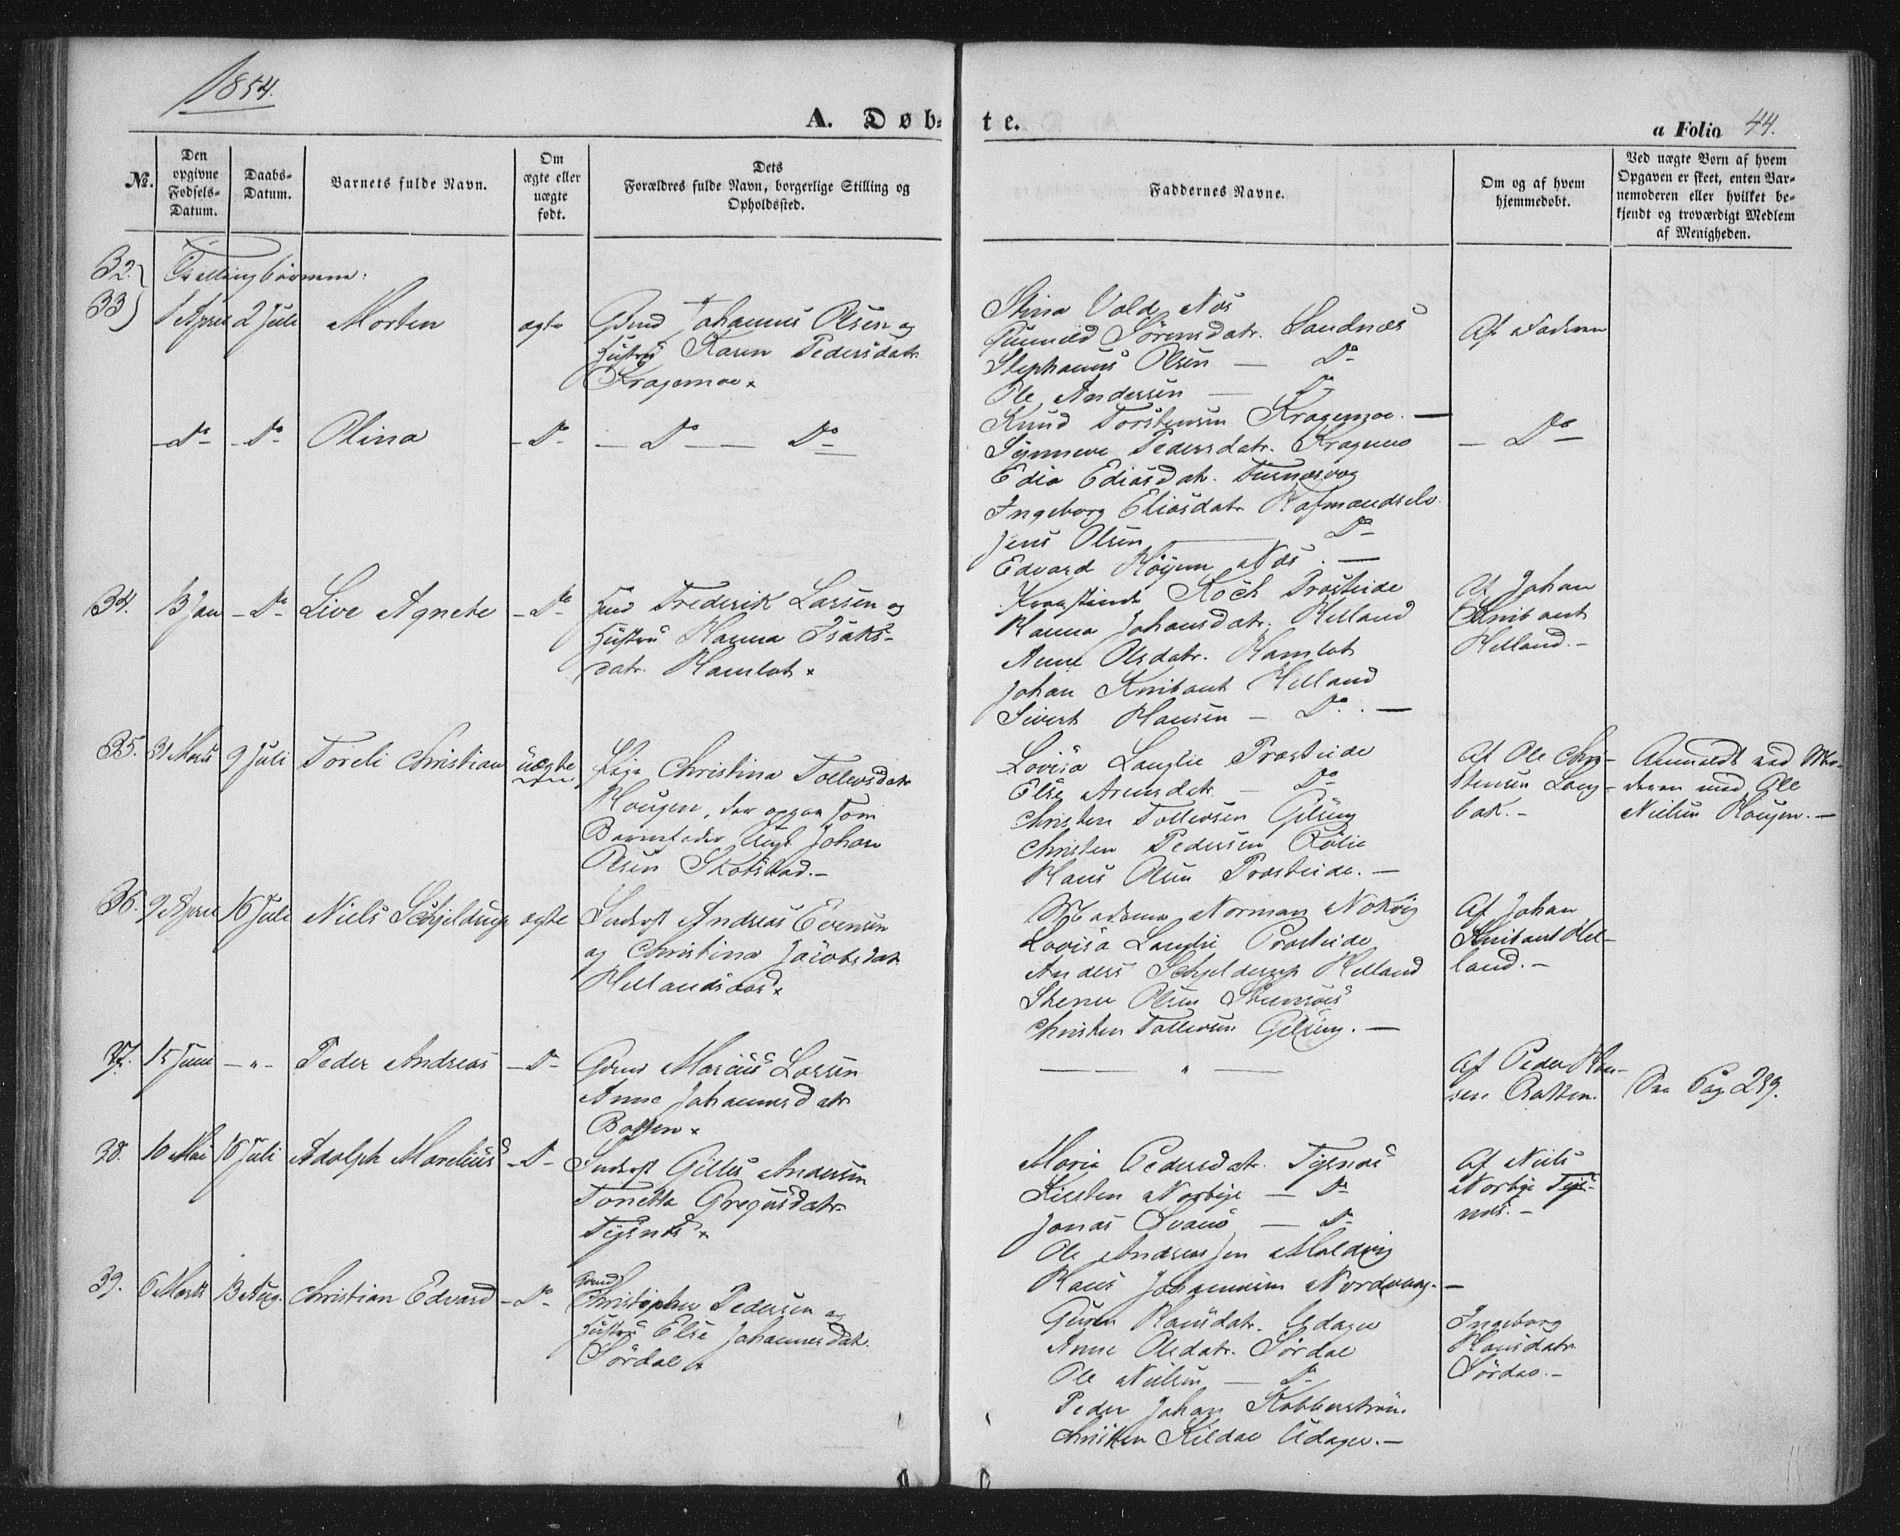 1854.
A. Døb-
te.
a Folio 44.
No.
Den opgivne Fødsels-Datum.
Daabs-Datum.
Barnets fulde Navn.
Om ægte eller uægte født.
Dets Forældres fulde Navn, borgerlige Stilling og Opholdssted.
Faddernes Navne.
Om og af hvem hjemmedøbt.
Ved uægte Børn af hvem Opgaven er skeet, enten Barnemoderen eller hvilket bekjendt og troværdigt Medlem af Menigheden.
32.
33
Tvillingbørnene:
1 April 2 Juli Morten ægte
Gmd Johannes Olsen og
Hustru Karen Pedersdatr.
Kragemoe
Stina Volde Næs
Gunnild Sörensdatr. Sandnæs
Stephanus Olsen — Do
Ole Andersen — Do
Knud Torstensen Kragemoe. —
Af Faderen
— Do — — Do — Olina — Do — — Do — — Do
Synneve Pedersdatr. Kragmo
Edia Ediasdatr.
Ingeborg Eliasdatr.
Jens Olsen — Do
Edvard Höyem Næs. —
— Do —
34. 13 Jan — Do — Live Agnete — Do —
Huusmd Frederik Larsen og
Hustru Hanna Isaks-
datr. Hamlot
Koch Præsteide
Hanna Johansdatr. Helland
Anne Olsdatr. Hamlot
Johan Knibant Helland
Sivert Hansen — Do. —
Af Johan
Knibant
Helland. —
35. 31 Marts 9 Juli Toreli Christian uægte
Pige Christina Tollevsdatr
Hougen, der opgav som
Barnefader Ungk Johan
Olsen Skotstad. —
Lovisa Langlie Præsteide
Else Arensdatr. — Do
Christen Tollevsen
Christen Pedersen
Hans Olsen Præsteide. —
Af Ole Chri-
stensen Lang-
bak. —
Anmeldt ved Mo-
deren med Ole
Nielsen Hougen. —
36. 9 April 16 Juli Niels Schjelderup ægte
Inderst Andreas Evensen
og Christina Jacobsdatr
Hellandsaas
Madame Norman Nokvig
Lovisa Langlie Præsteide
Anders Schjelderup Helland
Stener Olsen
Christen Tollevsen
Af Johan
Knibant Hel-
land. —
37. 15 Juni — " — Peder Andreas — Do —
Gmd Marcus Larsen
Anne Johannesdatr
Botten
— " —
Af Peder Han-
sen Botten.
See Pag 289.
38. 10 Mai 16 Juli Adolph Marelius — Do —
Inderst Gilles Andersen
Tonetta Gregusdatr
Tysnæs
Maria Pedersdatr. Tysnæs
Kirsten Norbye — Do
Jonas Svanö — Do
Ole Andreas Jen
Hans Johannesen Nordvaag. —
Af Niels
Norbye Tys-
næs. —
39. 6 Marts 13 Aug. Christian Edvard — Do —
Gmd
Christopher Pedersen og
Hustru Else Johannesdatr.
Sördal
Guren Hansdatr. Udager
Anne Olsdatr. Sördal
Ole Nielsen — Do
Peder Johan Kobberström
Christen Kildal Udager. —
Ingeborg
Hansdatr
Sördal. —